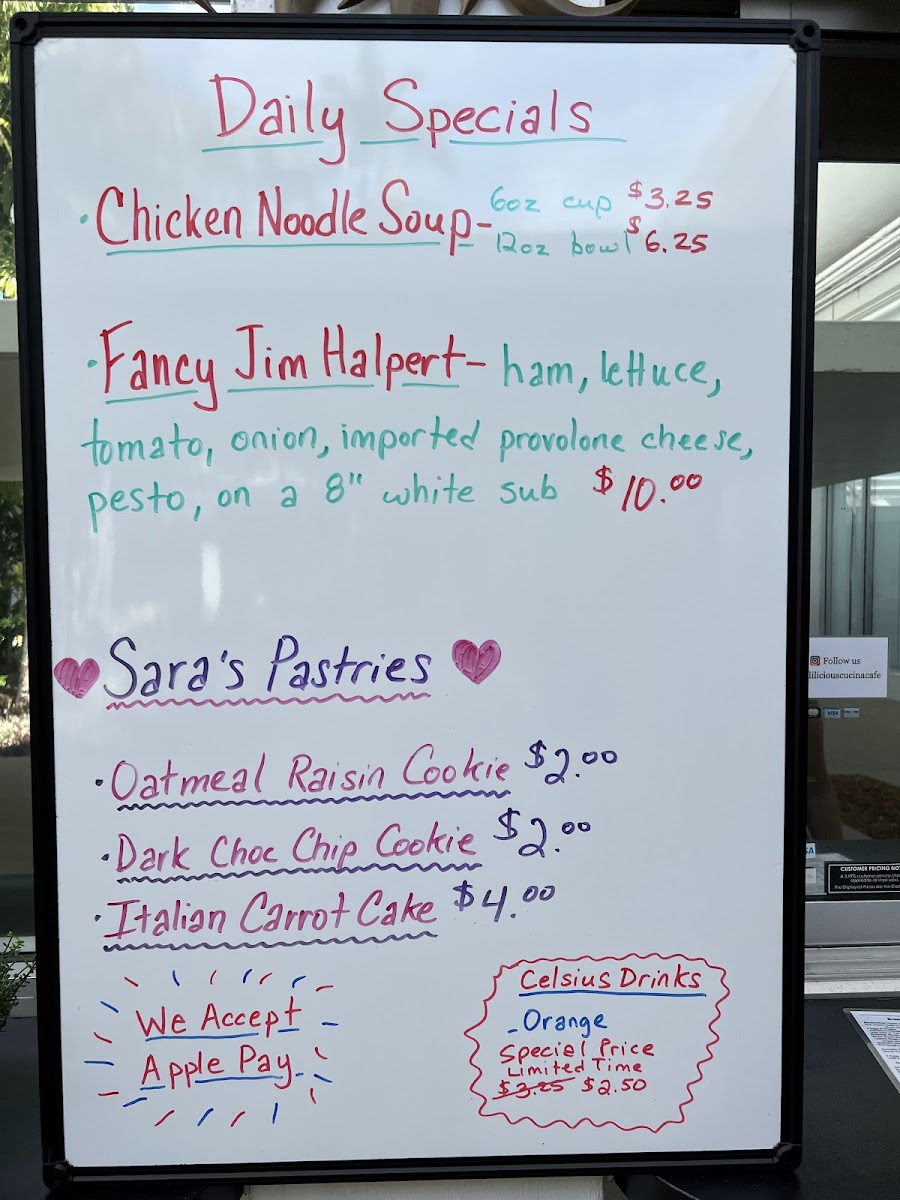 Daily Specials
· Chicken Noodle Soup - 6oz cup $3.25
12oz bowl $6.25
· Fancy Jim Halpert - ham, lettuce,
tomato, onion, imported provolone cheese,
pesto, on a 8" white sub $10.00
Sara's Pastries
· Oatmeal Raisin Cookie $2.00
· Dark Choc Chip Cookie $2.00
· Italian Carrot Cake $4.00
We Accept
Apple Pay
Celsius Drinks
- Orange
Special Price
Limited Time
$3.25 $2.50
Follow us
liliciouscucinacafe
VISA
CUSTOMER PRICING